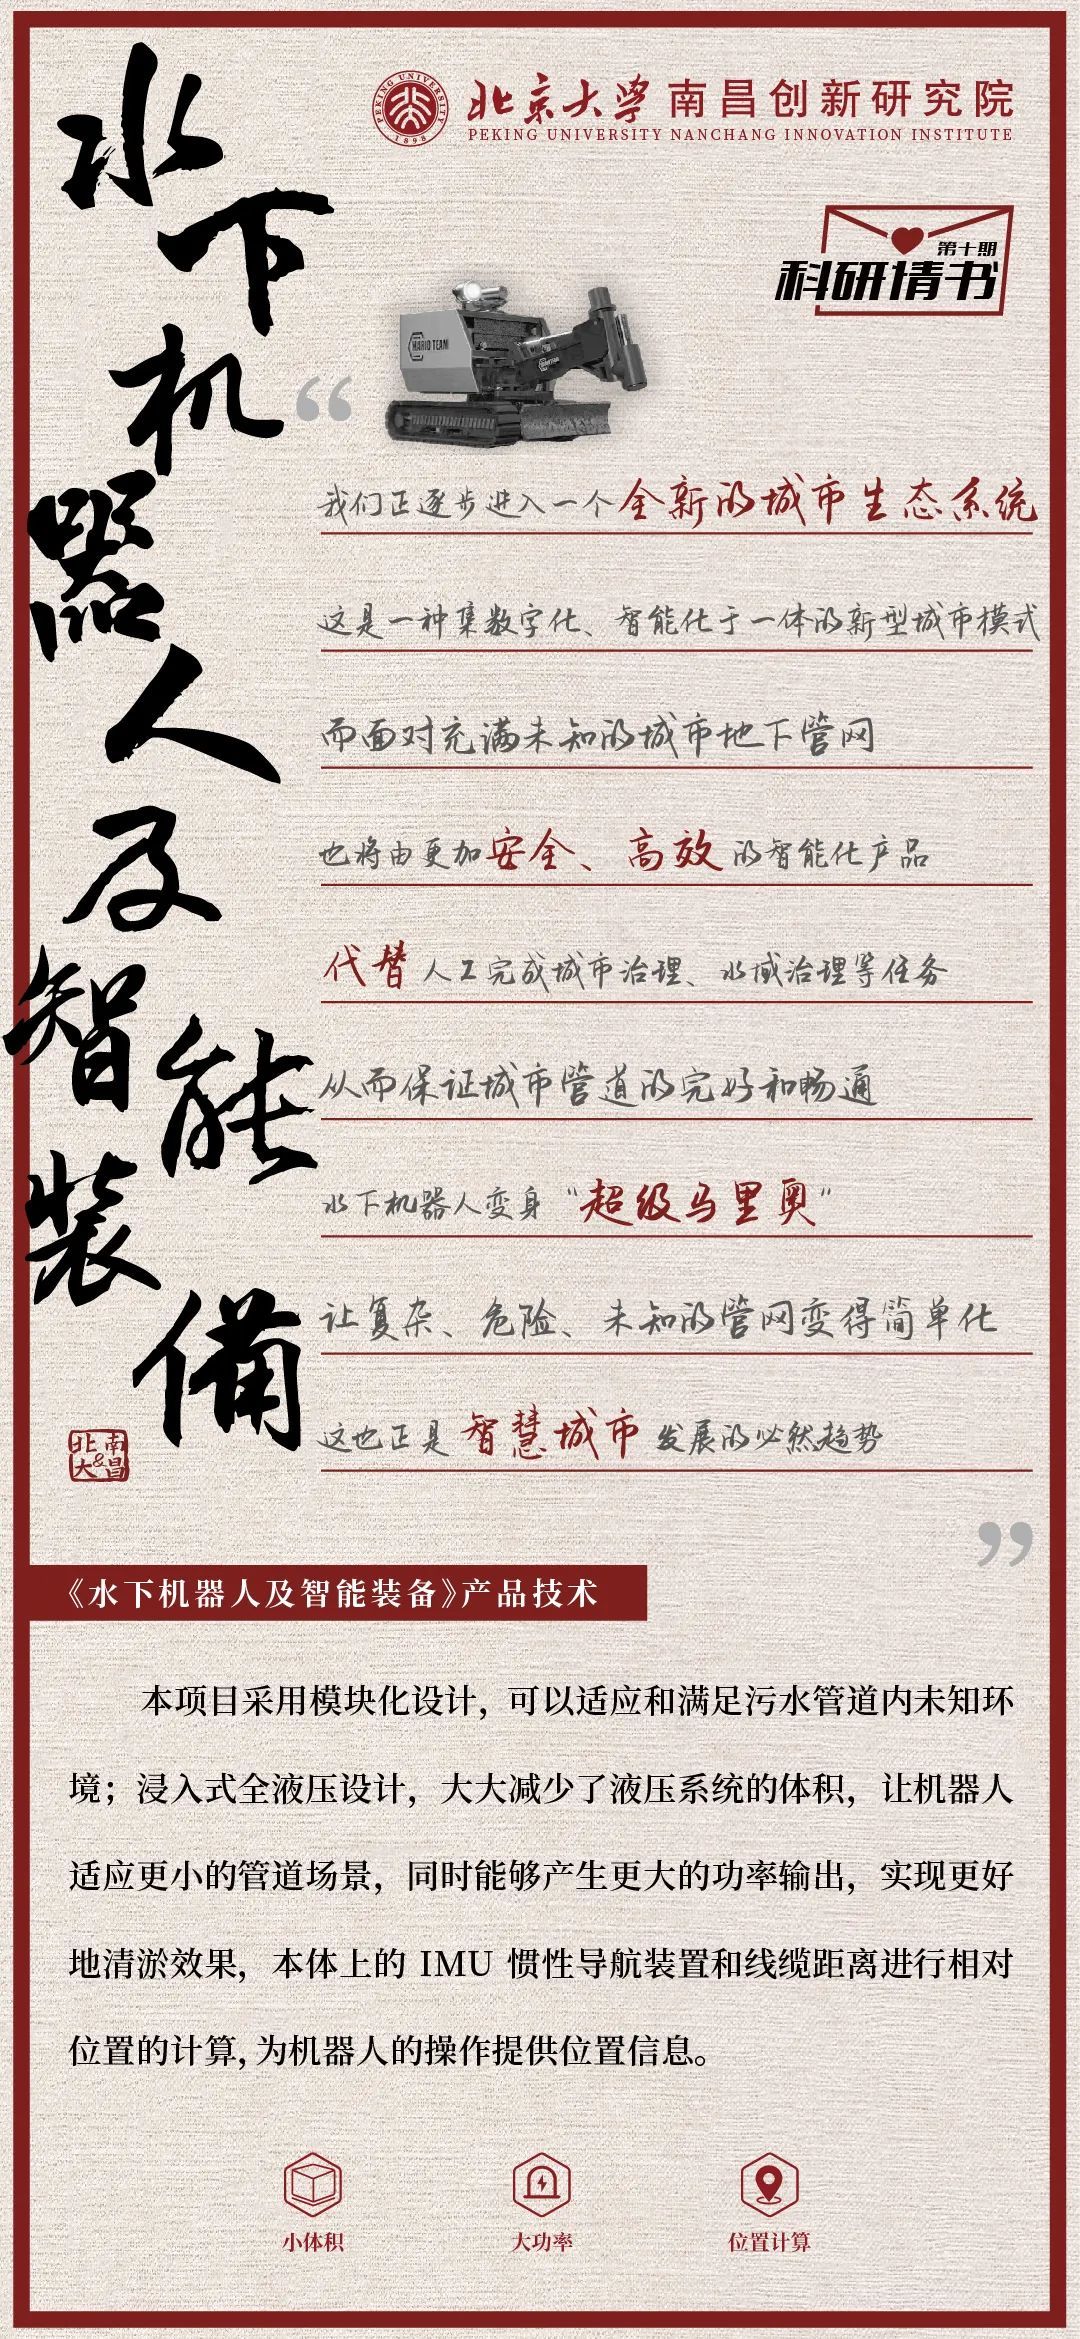 水下机器人及智能装備
PEKING UNIVERSITY
1898
北京大学南昌创新研究院
PEKING UNIVERSITY NANCHANG INNOVATION INSTITUTE
第十期
科研情书
MARIO TEAM
“
我们正逐步进入一个全新的城市生态系统
这是一种集数字化、智能化于一体的新型城市模式
而面对充满未知的城市地下管网
也将由更加安全、高效的智能化产品
代替人工完成城市治理、水域治理等任务
从而保证城市管道的完好和畅通
水下机器人变身“超级马里奥”
让复杂、危险、未知的管网变得简单化
这也正是智慧城市发展的必然趋势
”
北大&南昌
《水下机器人及智能装备》产品技术
本项目采用模块化设计，可以适应和满足污水管道内未知环
境；浸入式全液压设计，大大减少了液压系统的体积，让机器人
适应更小的管道场景，同时能够产生更大的功率输出，实现更好
地清淤效果，本体上的 IMU 惯性导航装置和线缆距离进行相对
位置的计算，为机器人的操作提供位置信息。
小体积
大功率
位置计算